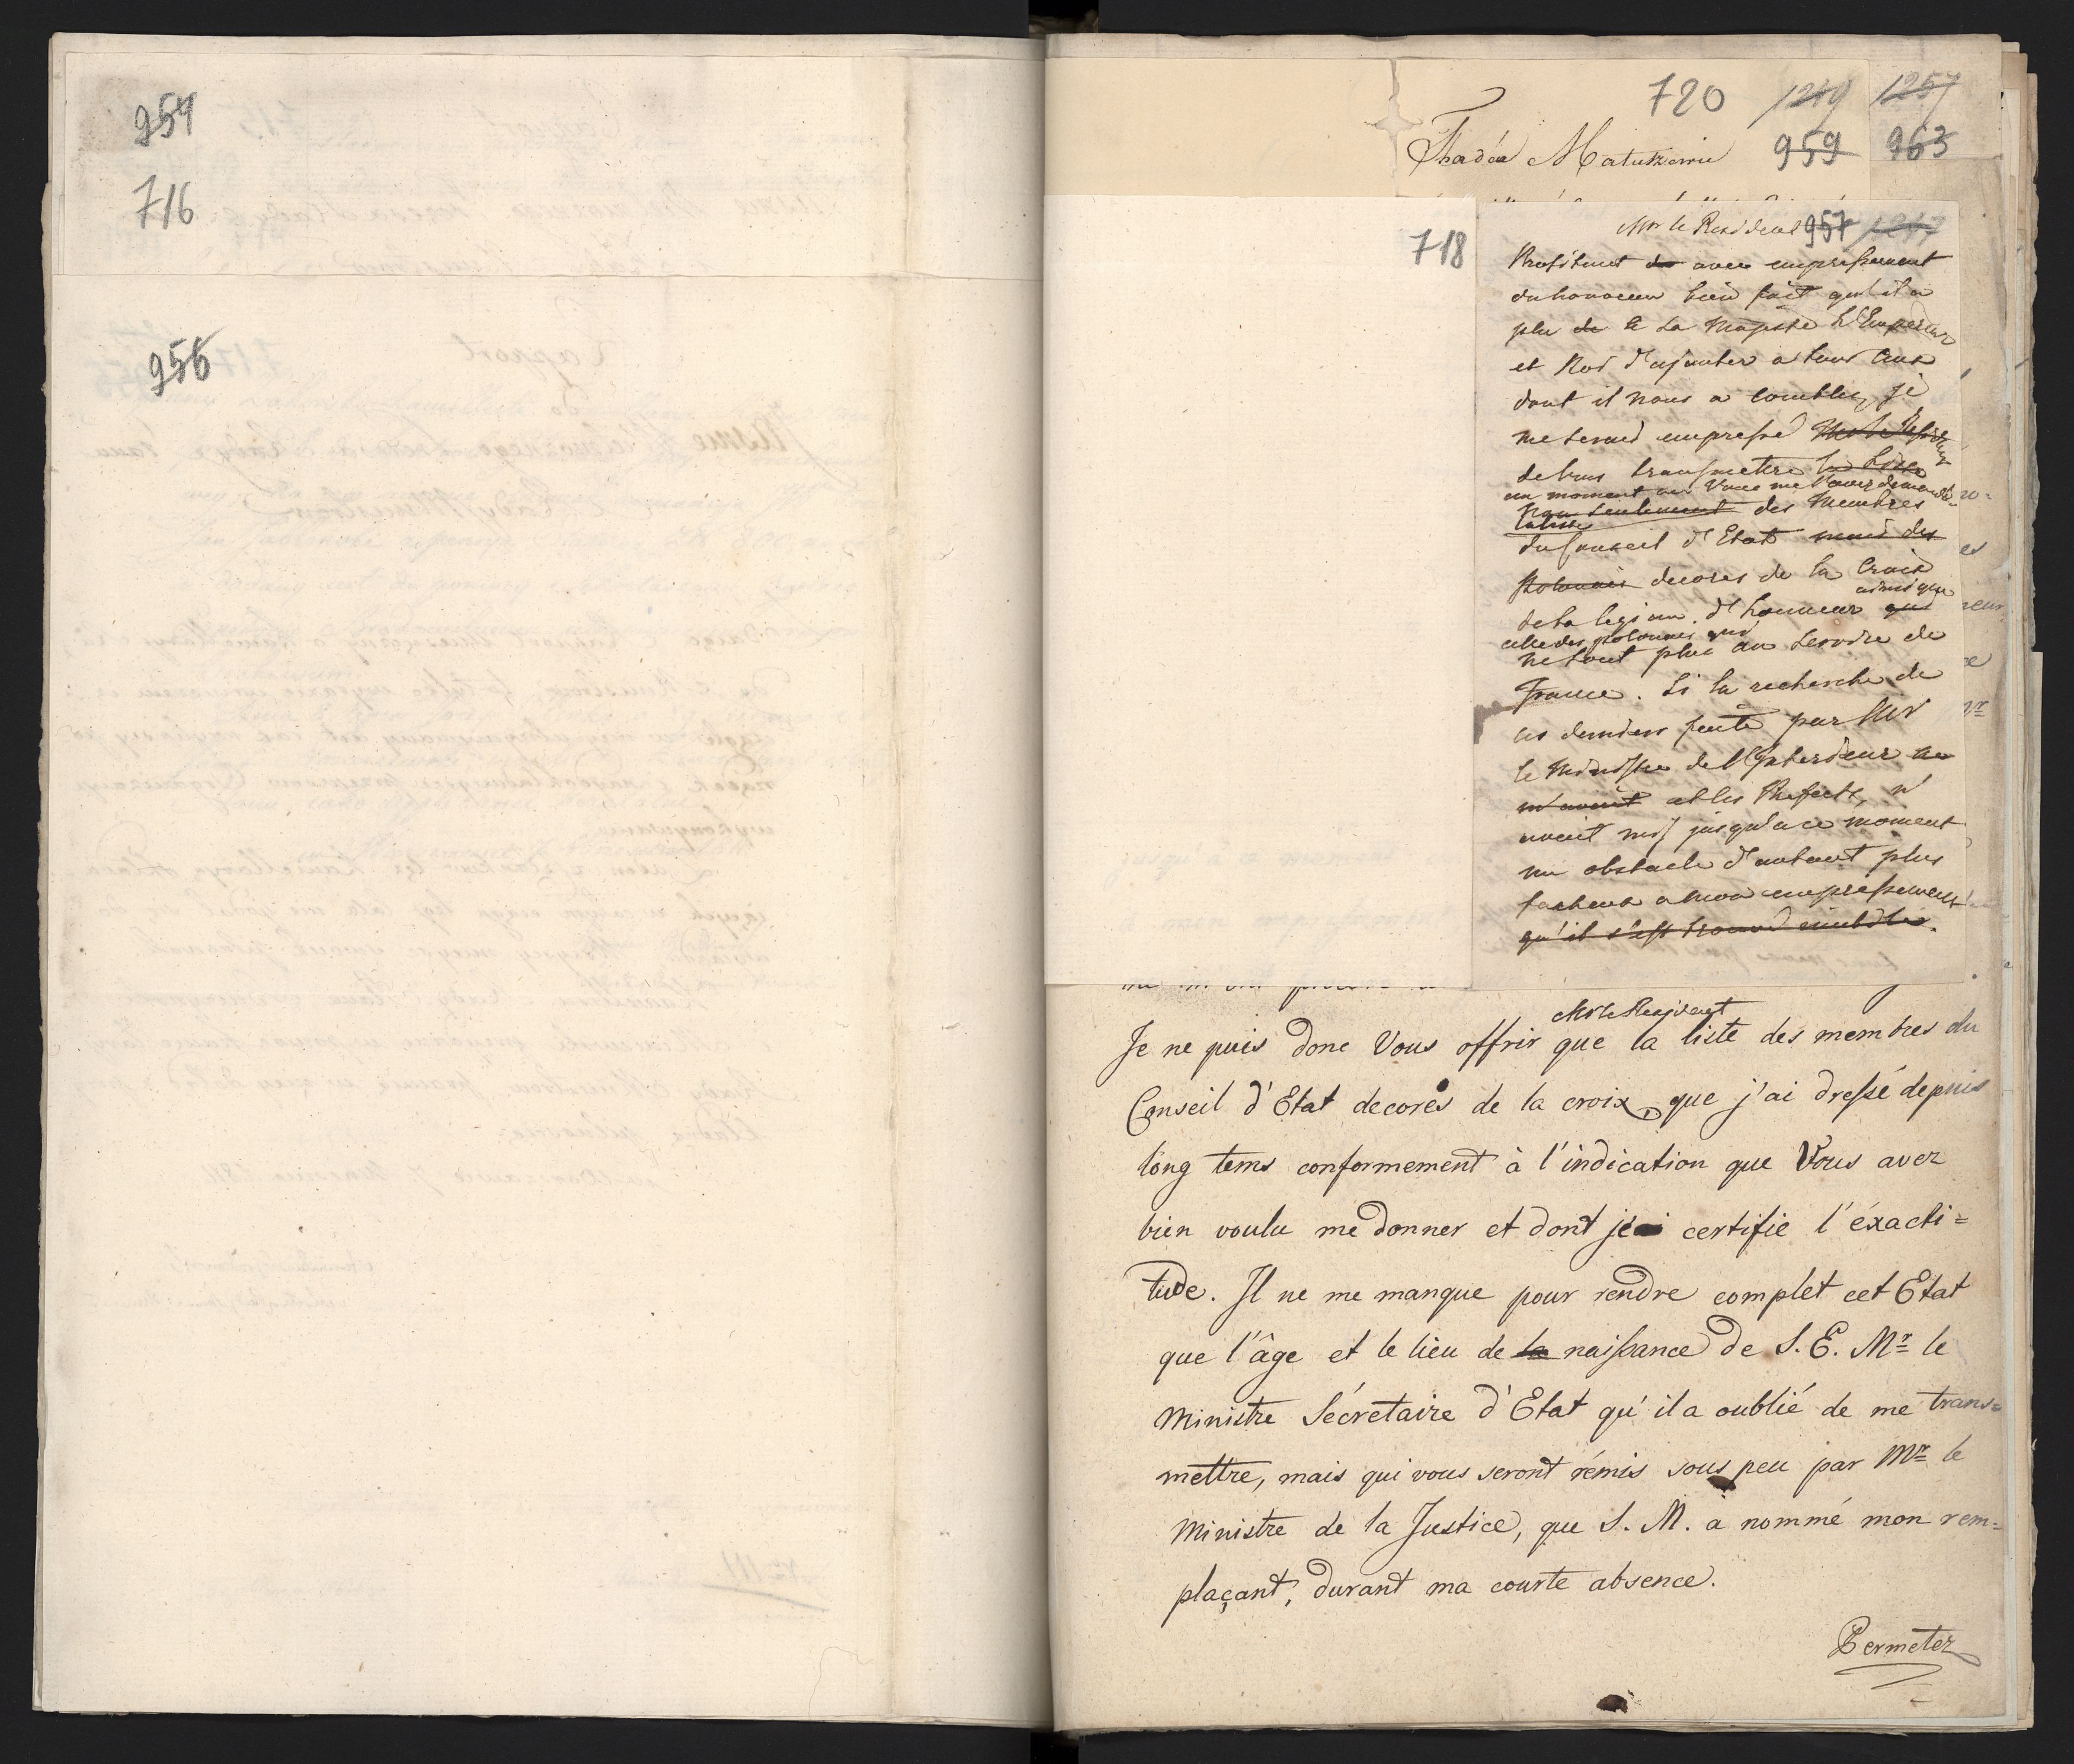 954
716
956
720 1249 1257
Thadée Matuszewic 959 963
718
Mr le Resident 957 1247
Profitant de avec empressement
du nouveau bien fait qu'il a
plu de a Sa Majesté L'Empereur
et Roi d'ajouter a tous ceux
dont il nous a comblés, je
me serais empressé Mr le Resident
de vous transmettre la liste
au moment où Vous me l'avez demandé
non seulement des Membres
la liste
du Conseil d'Etat mais des
Polonais decorés de la Croix
ainsi que
de la legion d'honneur qui
celle des polonais qui
ne sont plus au service de
France. Si la recherche de
ces derniers faite par Mr
le Ministre de l'Interieur ne
m'avait et les Prefects, n'
avait mis jusqu'a ce moment
un obstacle d'autant plus
facheux a mon empressement
qu'il s'est trouvé
Mr le Resident
Je ne puis donc Vous offrir que la liste des membres du
Conseil d'Etat decorés de la croix, que j'ai dressé depuis
long tems conformement à l'indication que Vous avez
bien voulu me donner et dont je certifie l'éxacti=
tude. Il ne me manque pour rendre complet cet Etat
que l'âge et le lieu de la naissance de S. E. Mr le
Ministre Sécretaire d'Etat qu'il a oublié de me trans=
mettre, mais qui vous seront rémis sous peu par Mr le
Ministre de la Justice, que S. M. a nommé mon rem=
plaçant, durant ma courte absence.
Permetez